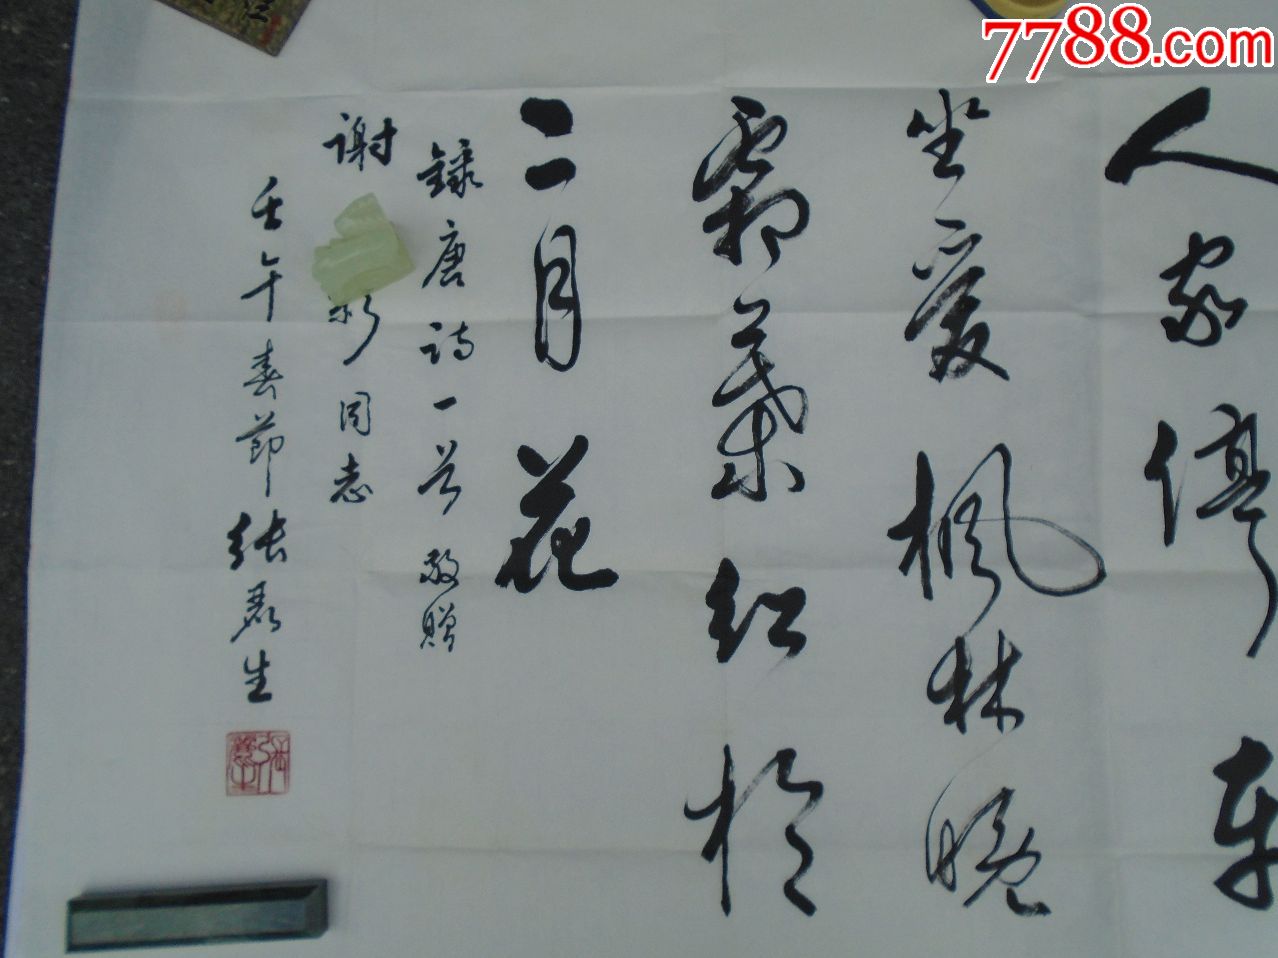 7788.com
人家停车
坐爱枫林晚
霜葉红於
二月花
録唐诗一首 敬贈
谢 彩同志
壬午春節 张 生